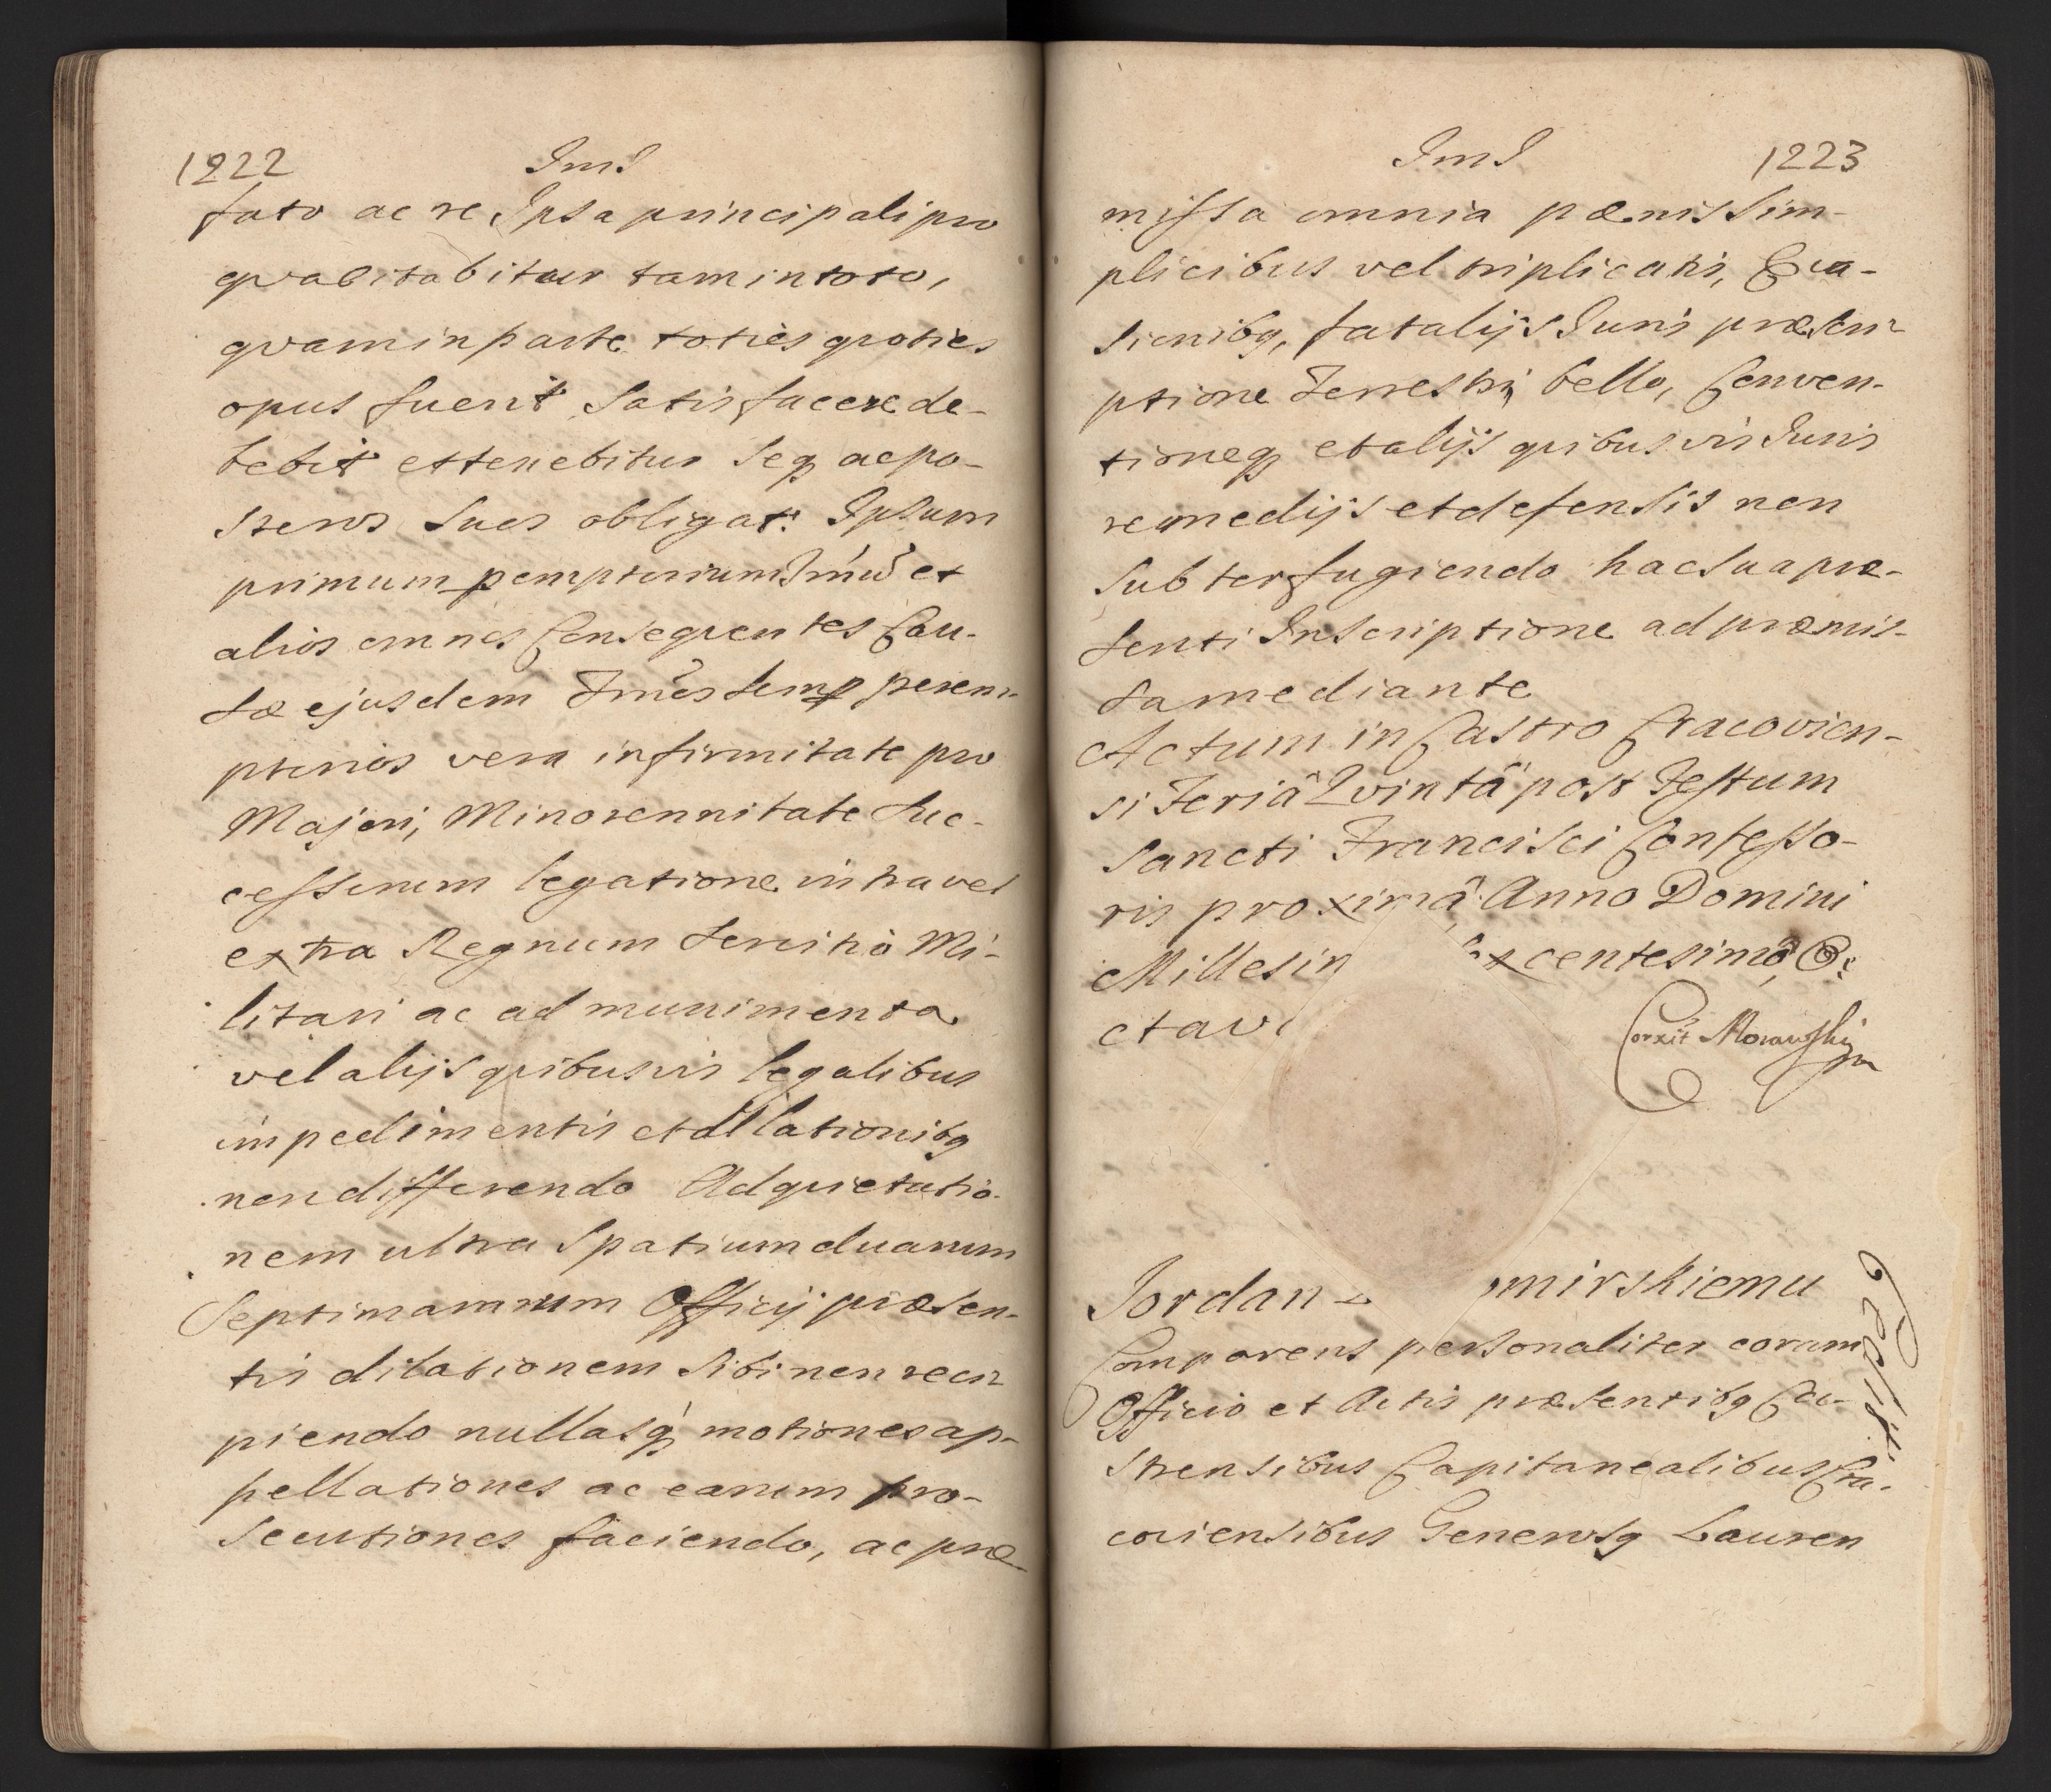 1222 Ims
fato ac re Ipsa principali pro
qvabitabitur tam in toto,
qvam in parte toties qvoties
opus fuerit Satisfacere de-
bebit et tenebitur Seq ac po-
steros Suos obligat: Ipsum
primum pemptorium Imũ et
alios omnes Consequentes Cau-
sæ ejusdem Tmĩes temp perem-
ptorios vera infirmitate pro
Majori, Minorennitate Suc-
cessorum legatione intra vel
extra Regnum Servitio Mi-
litari ac ad munimenta
vel alijs qvibusvis legalibus
impedimentis et dilationibq
non differendo Ad qvietatio-
nem ultra Spatium duarum
Septimanarum Officij præsen-
tis dilationem Sibi non reci-
piendo nullasq motiones ap-
pellationes ac earum pro-
secutiones faciendo, ac præ
Ims 1223
missa omnia pænis Sim-
plicibus vel triplicatis, Eva-
sionibq, fatalijs Juris præscri-
ptione Terrestri, bello, Conven-
tioneq et alijs qvibusvis Juris
remedijs et defensis non
Subterfugiendo hac Sua præ-
senti Inscriptione ad præmis-
sa mediante
Actum in Castro Cracovien-
si Feriâ Qvintâ post Festum
Sancti Francisci Confesso-
ris proximâ Anno Domini
Millesim centesimô, O:
ctavo
Corxit Morawski mp
Jordan mirskiemu
Cedit
Comparens personaliter coram
Officio et Actis præsentibq Ca-
strensibus Capitanealibus Cra-
coviensibus Generosq Lauren